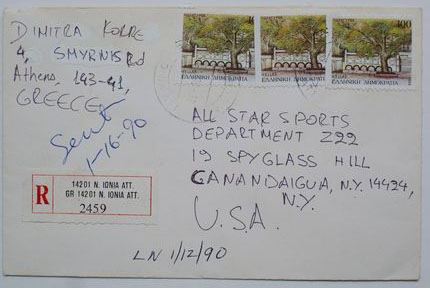 DIMITRA KORRE
4, SMYRNIS Rd
Athens, 143-41,
GREECE
Sent
1-16-90
100
ΕΛΛΗΝΙΚΗ ΔΗΜΟΚΡΑΤΙΑ
ΕΛΛΗΝΙΚΗ ΔΗΜΟΚΡΑΤΙΑ
ΕΛΛΗΝΙΚΗ ΔΗΜΟΚΡΑΤΙΑ
ALL STAR SPORTS
DEPARTMENT Z22
19 SPYGLASS HILL
CANANDAIGUA, N.Y. 14424,
N.Y.
U.S.A.
R
14201 N. IONIA ATT.
GR 14201 N. IONIA ATT.
2459
LN 1/12/90